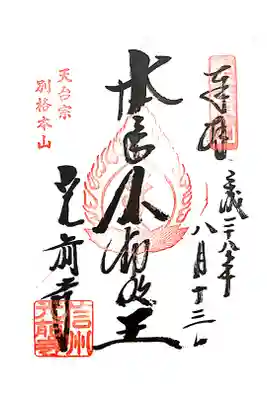 奉拝
平成二十八年
八月十三日
不動明王
光前寺
天台宗
別格本山
信州
光前寺